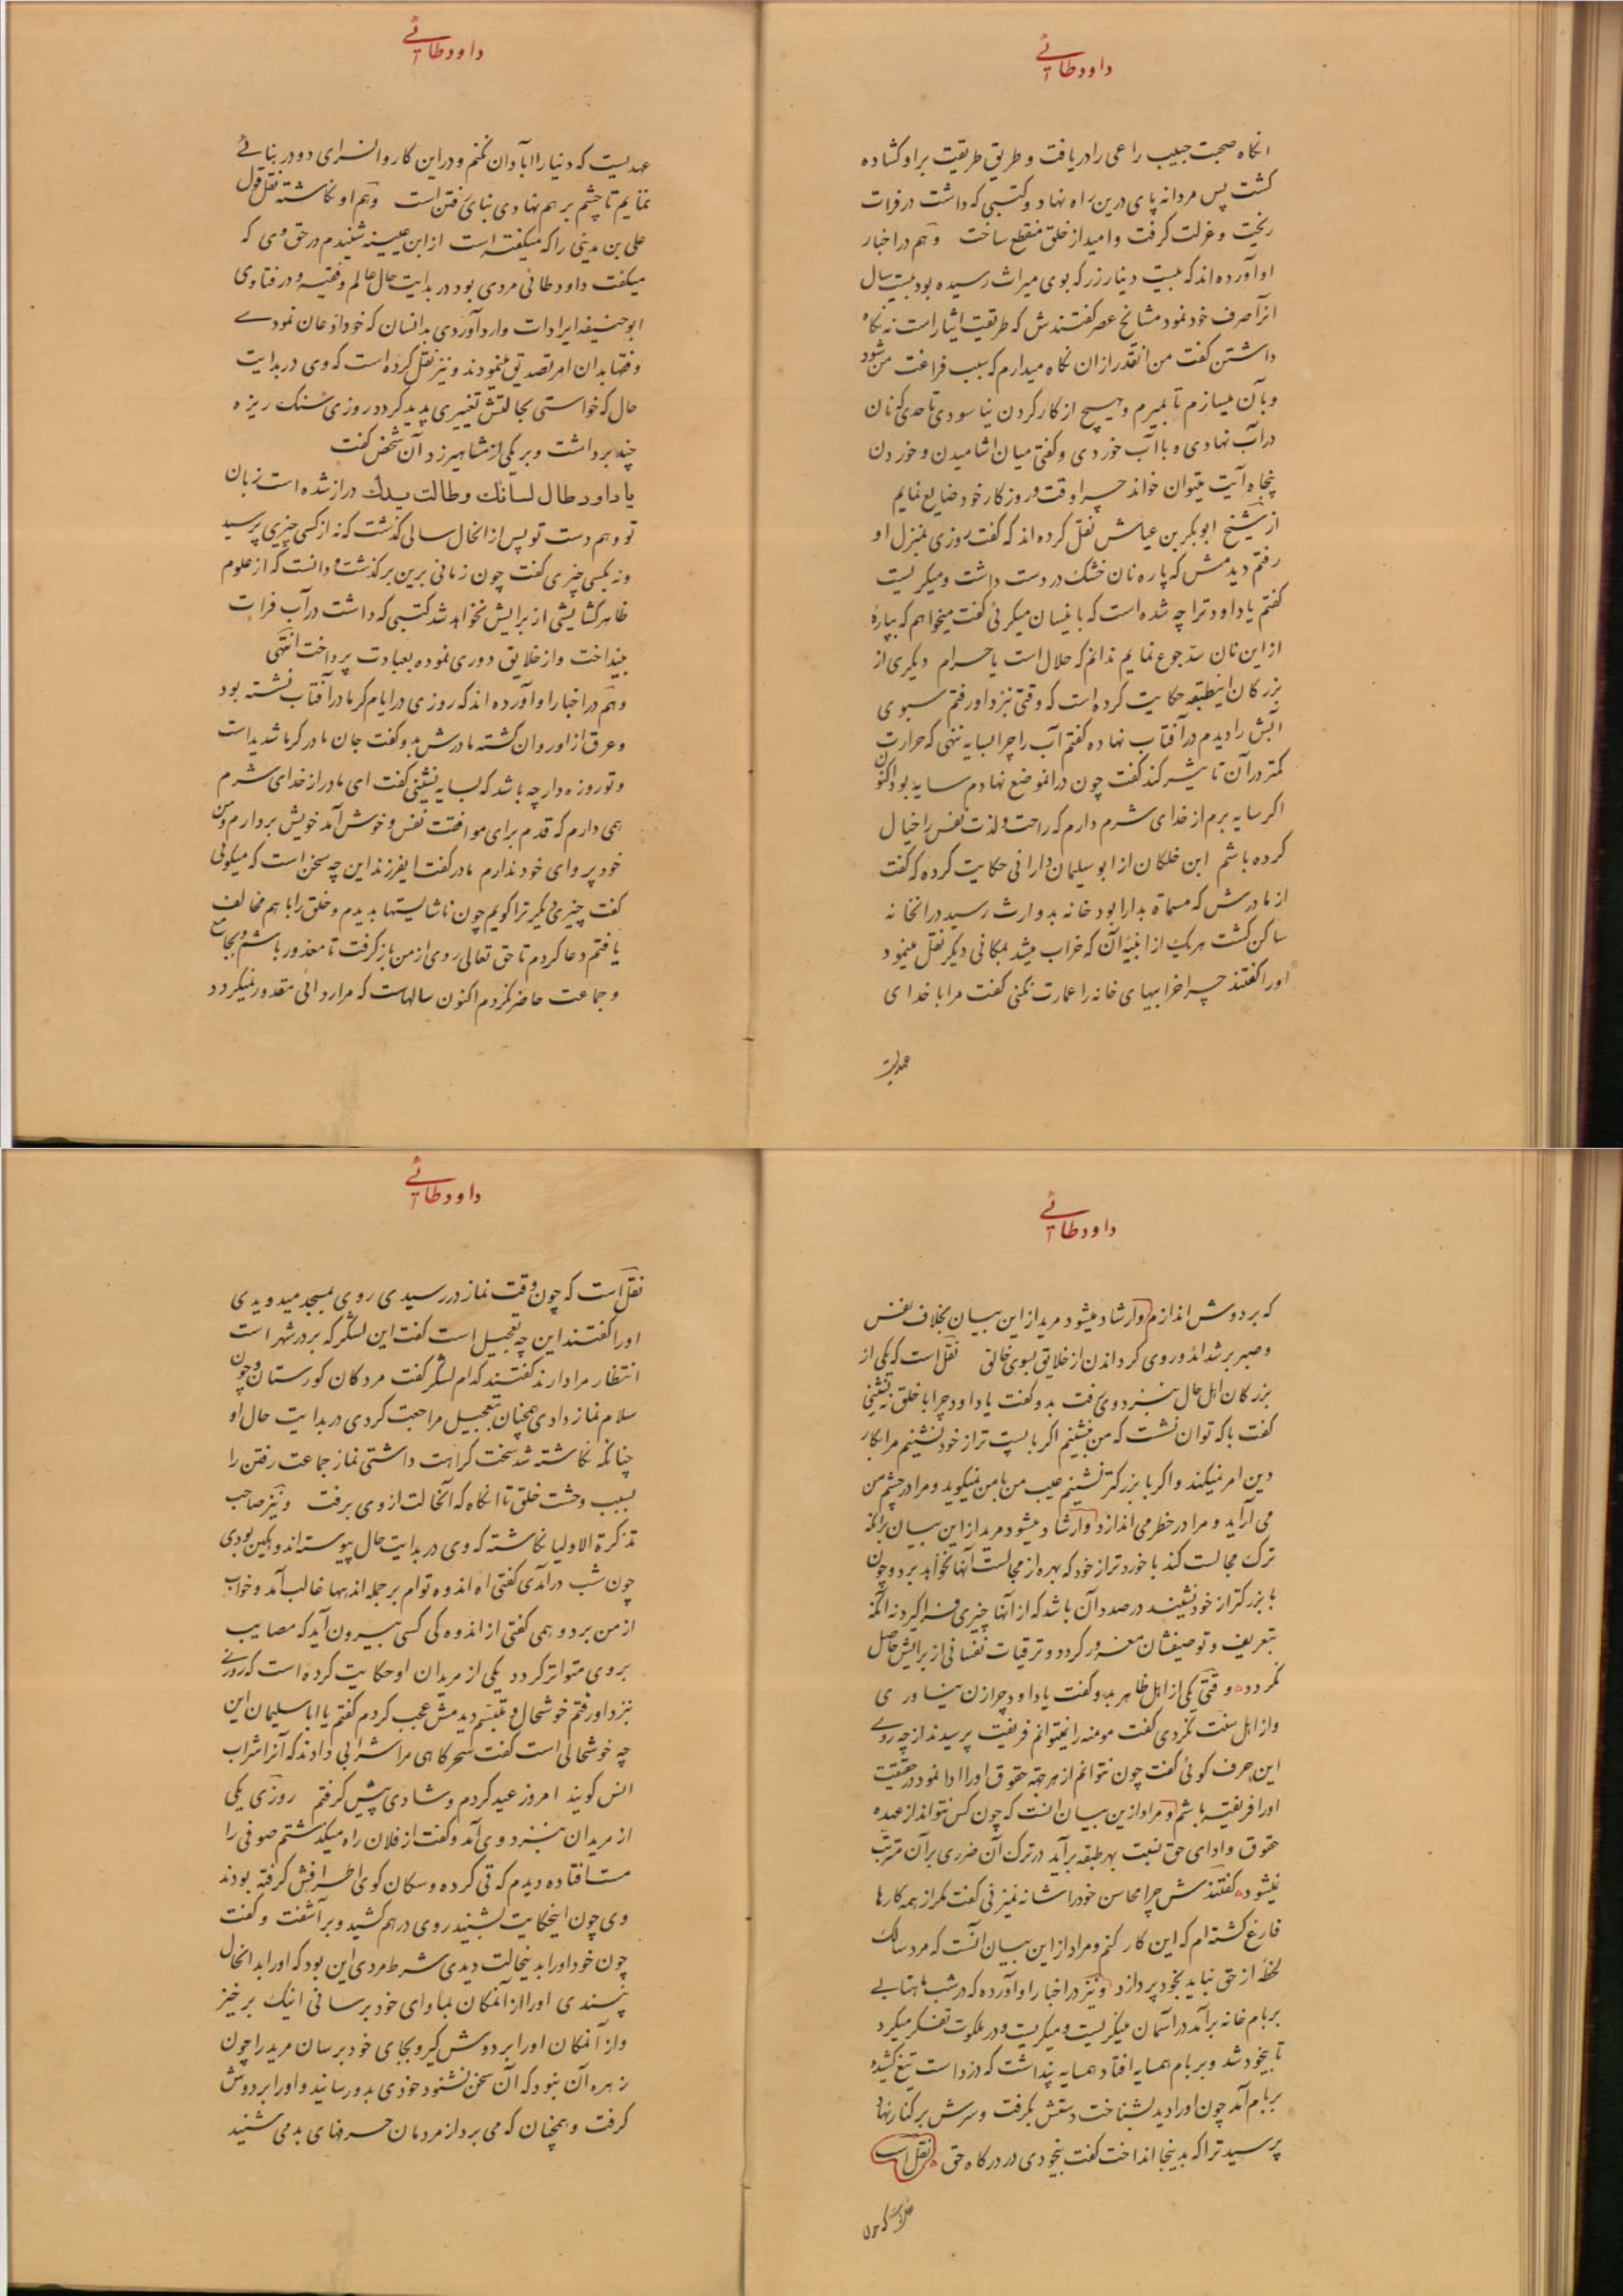 داود طائی
انکاه صحبت حبیب راعی را دریافت و طریق طریقت بر او کشاده
کشت پس مردانه پای درین راه نهاد و کتبی که داشت در فرات
ریخت و عزلت کرفت و امید از خلق منقطع ساخت وهم در اخبار
او آورده‌اند که بیست دینار زر که بوی میراث رسیده بود بیست سال
انرا صرف خود نمود مشایخ عصر کفتندش که طریقت ایثار است نه نکاه
داشتن کفت من انقدر از ان نکاه میدارم که سبب فراغت من شود
و بآن میسازم تا بمیرم و هیچ از کار کردن نیاسودی تا حدی که نان
در آب نهادی و با آب خوردی و کفتی میان اشامیدن و خوردن
پنجاه آیت میتوان خواند چرا وقت و روزکار خود ضایع نمایم
از شیخ ابوبکر بن عیاش نقل کرده‌اند که کفت روزی بمنزل او
رفتم دیدمش که پاره نان خشک در دست داشت و میکریست
کفتم یا داود ترا چه شده است که باینسان میکرئی کفت میخواهم که بپارهٔ
از این نان سد جوع نمایم ندانم که حلال است یا حرام دیکری از
بزرکان اینطبقه حکایت کرده است که وقتی نزد او رفتم سبوی
آبش را دیدم در آفتاب نهاده کفتم آب را چرا بسایه ننهی که حرارت
کمتر در آن تاثیر کند کفت چون در انموضع نهادم سایه بود اکنون
اکر سایه برم از خدای شرم دارم که راحت و لذت نفس را خیال
کرده باشم ابن خلکان از ابو سلیمان دارانی حکایت کرده که کفت
از مادرش که مسماة بدارا بود خانه بدو ارث رسید در انخانه
ساکن کشت هر یک از ابنیه آن که خراب میشد بمکانی دیکر نقل مینمود
او را کفتند چرا خرابیهای خانه را عمارت نکنی کفت مرا با خدای
عهدیست
داود طائی
عهدیست که دنیا را آبادان نکنم و در این کاروانسرای دو در بنائی
ننمایم تا چشم بر هم نهادی بنای رفتن است وهم او نکاشته نقل قول
علی بن مدینی را که میکفته است از ابن عیینه شنیدم در حق وی که
میکفت داود طائی مردی بود در بدایت حال عالم و فقیه و در فتاوی
ابوحنیفه ایرادات وارد آوردی بدانسان که خود اذعان نمودے
و فقها بدان امر تصدیق مینمودند و نیز نقل کرده است که وی در بدایت
حال که خواستی بحالتش تغییری پدید کردد روزی سنک ریزه
چند برداشت و بر یکی از مشاهیر زد آن شخص کفت
یا داود طال لسانک وطالت یدک دراز شده است زبان
تو و هم دست تو پس از انحال سالی کذشت که نه از کسی چیزی پرسید
و نه بکسی چیزی کفت چون زمانی برین بر کذشت و دانست که از علوم
ظاهر کشایشی از برایش نخواهد شد کتبی که داشت در آب فرات
بینداخت و از خلایق دوری نموده بعبادت پرداخت انتهی
وهم در اخبار او آورده‌اند که روزی در ایام کرما در آفتاب نشسته بود
و عرق از او روان کشته مادرش بدو کفت جان مادر کرما شدید است
و تو روزه دار چه باشد که بسایه نشینی کفت ای مادر از خدای شرم
همی دارم که قدم برای موافقت نفس و خوش آمد خویش بردارم و من
خود پروای خود ندارم مادر کفت ایفرزند این چه سخن است که میکوئی
کفت چیزی دیکر ترا کویم چون ناشایستها بدیدم و خلق را با هم مخالف
یافتم دعا کردم تا حق تعالی روی از من باز کرفت تا معذور باشم و بجامع
و جماعت حاضر نکردم اکنون سالهاست که مرا ردائی مقدور نمیکردد
داود طائی
که بر دوش اندازم وارشاد میشود مرید از این بیان بخلاف نفس
و صبر بر شداید و روی کرداندن از خلایق بسوی خالق نقل است که یکی از
بزرکان اهل حال بنزد وی رفت بدو کفت یا داود چرا با خلق ننشینی
کفت با که توان نشست که من بنشینم اکر با پست تر از خود نشینم مرا بکار
دین امر نمیکند و اکر با بزرکتر نشینم عیب من با من نمیکوید و مرا در چشم من
می آراید و مرا در خطر می اندازد وارشاد میشود مرید از این بیان بر آنکه
ترک مجالست کند با خورد تر از خود که بهره از مجالست آنها نخواهد برد و چون
با بزرکتر از خود نشیند در صدد آن باشد که از آنها چیزی فرا کیرد نه آنکه
بتعریف و توصیفشان مغرور کردد و ترقیات نفسانی از برایش حاصل
نکردد وقتی یکی از اهل ظاهر بدو کفت یا داود چرا زن نیاوری
و از اهل سنت نکردی کفت مومنه را نمیتوانم فریفت پرسیدند از چه روے
این حرف کوئی کفت چون نتوانم از هر جهة حقوق او را ادا نمود در حقیقت
او را فریفته باشم و مراد از این بیان انست که چون کس نتواند از عهده
حقوق و ادای حق نسبت بهر طبقه بر آید در ترک آن ضرری بر آن مترتب
نمیشود کفتندش چرا محاسن خود را شانه نمیزنی کفت مکر از همه کارها
فارغ کشته‌ام که این کار کنم و مراد از این بیان انست که مرد سالک
لحظهٔ از حق نباید بخود پردازد و نیز در اخبار او آورده که در شب ماهتابی
بر بام خانه بر آمد در آسمان مینکریست و میکریست و در ملکوت تفکر میکرد
تا بیخود شد و بر بام همسایه افتاد همسایه پنداشت که دزد است تیغ کشیده
بر بام آمد چون او را دید بشناخت دستش بکرفت و سرش بر کنار نهاد
پرسید ترا که بدینجا انداخت کفت بیخودی در درکاه حق نقل است
داود طائی
نقل است که چون وقت نماز در رسیدی روی بمسجد میدویدی
او را کفتند این چه تعجیل است کفت این لشکر که بر در شهر است
انتظار مرا دارند کفتند کدام لشکر کفت مردکان کورستان و چون
سلام نماز دادی همچنان بتعجیل مراجعت کردی در بدایت حال او
چنانکه نکاشته شد سخت کراهت داشتی نماز جماعت رفتن را
بسبب وحشت خلق تا انکاه که آنحالت از وی برفت و نیز صاحب
تذکرة الاولیا نکاشته که وی در بدایت حال پیوسته اندوهکین بودی
چون شب درآمدی کفتی اه اندوه توام بر جمله اندهها غالب آمد و خواب
از من برد و همی کفتی از اندوه کی کسی بیرون آید که مصایب
بر وی متواتر کردد یکی از مریدان او حکایت کرده است که روزے
نزد او رفتم خوشحال و متبسم دیدمش عجب کردم کفتم یا ابا سلیمان این
چه خوشحالی است کفت سحرکاهی مرا شرابی دادند که آنرا شراب
انس کویند امروز عید کردم و شادی پیش کرفتم روزی یکی
از مریدان بنزد وی آمد و کفت از فلان راه میکذشتم صوفی را
مست افتاده دیدم که قی کرده و سکان کوی اطرافش کرفته بودند
وی چون اینحکایت بشنید روی در هم کشید و بر آشفت و کفت
چون خود او را بدینحالت دیدی شرط مردی این بود که او را بدانحال
نپسندی او را از آنمکان بماوای خود برسانی اینک بر خیز
و از آنمکان او را بر دوش کیر و بجای خود برسان مرید را چون
زهره آن نبود که آن سخن نشنود خودی بدو رسانید و او را بر دوش
کرفت و همچنان که می برد از مردمان حرفهای بد می شنید